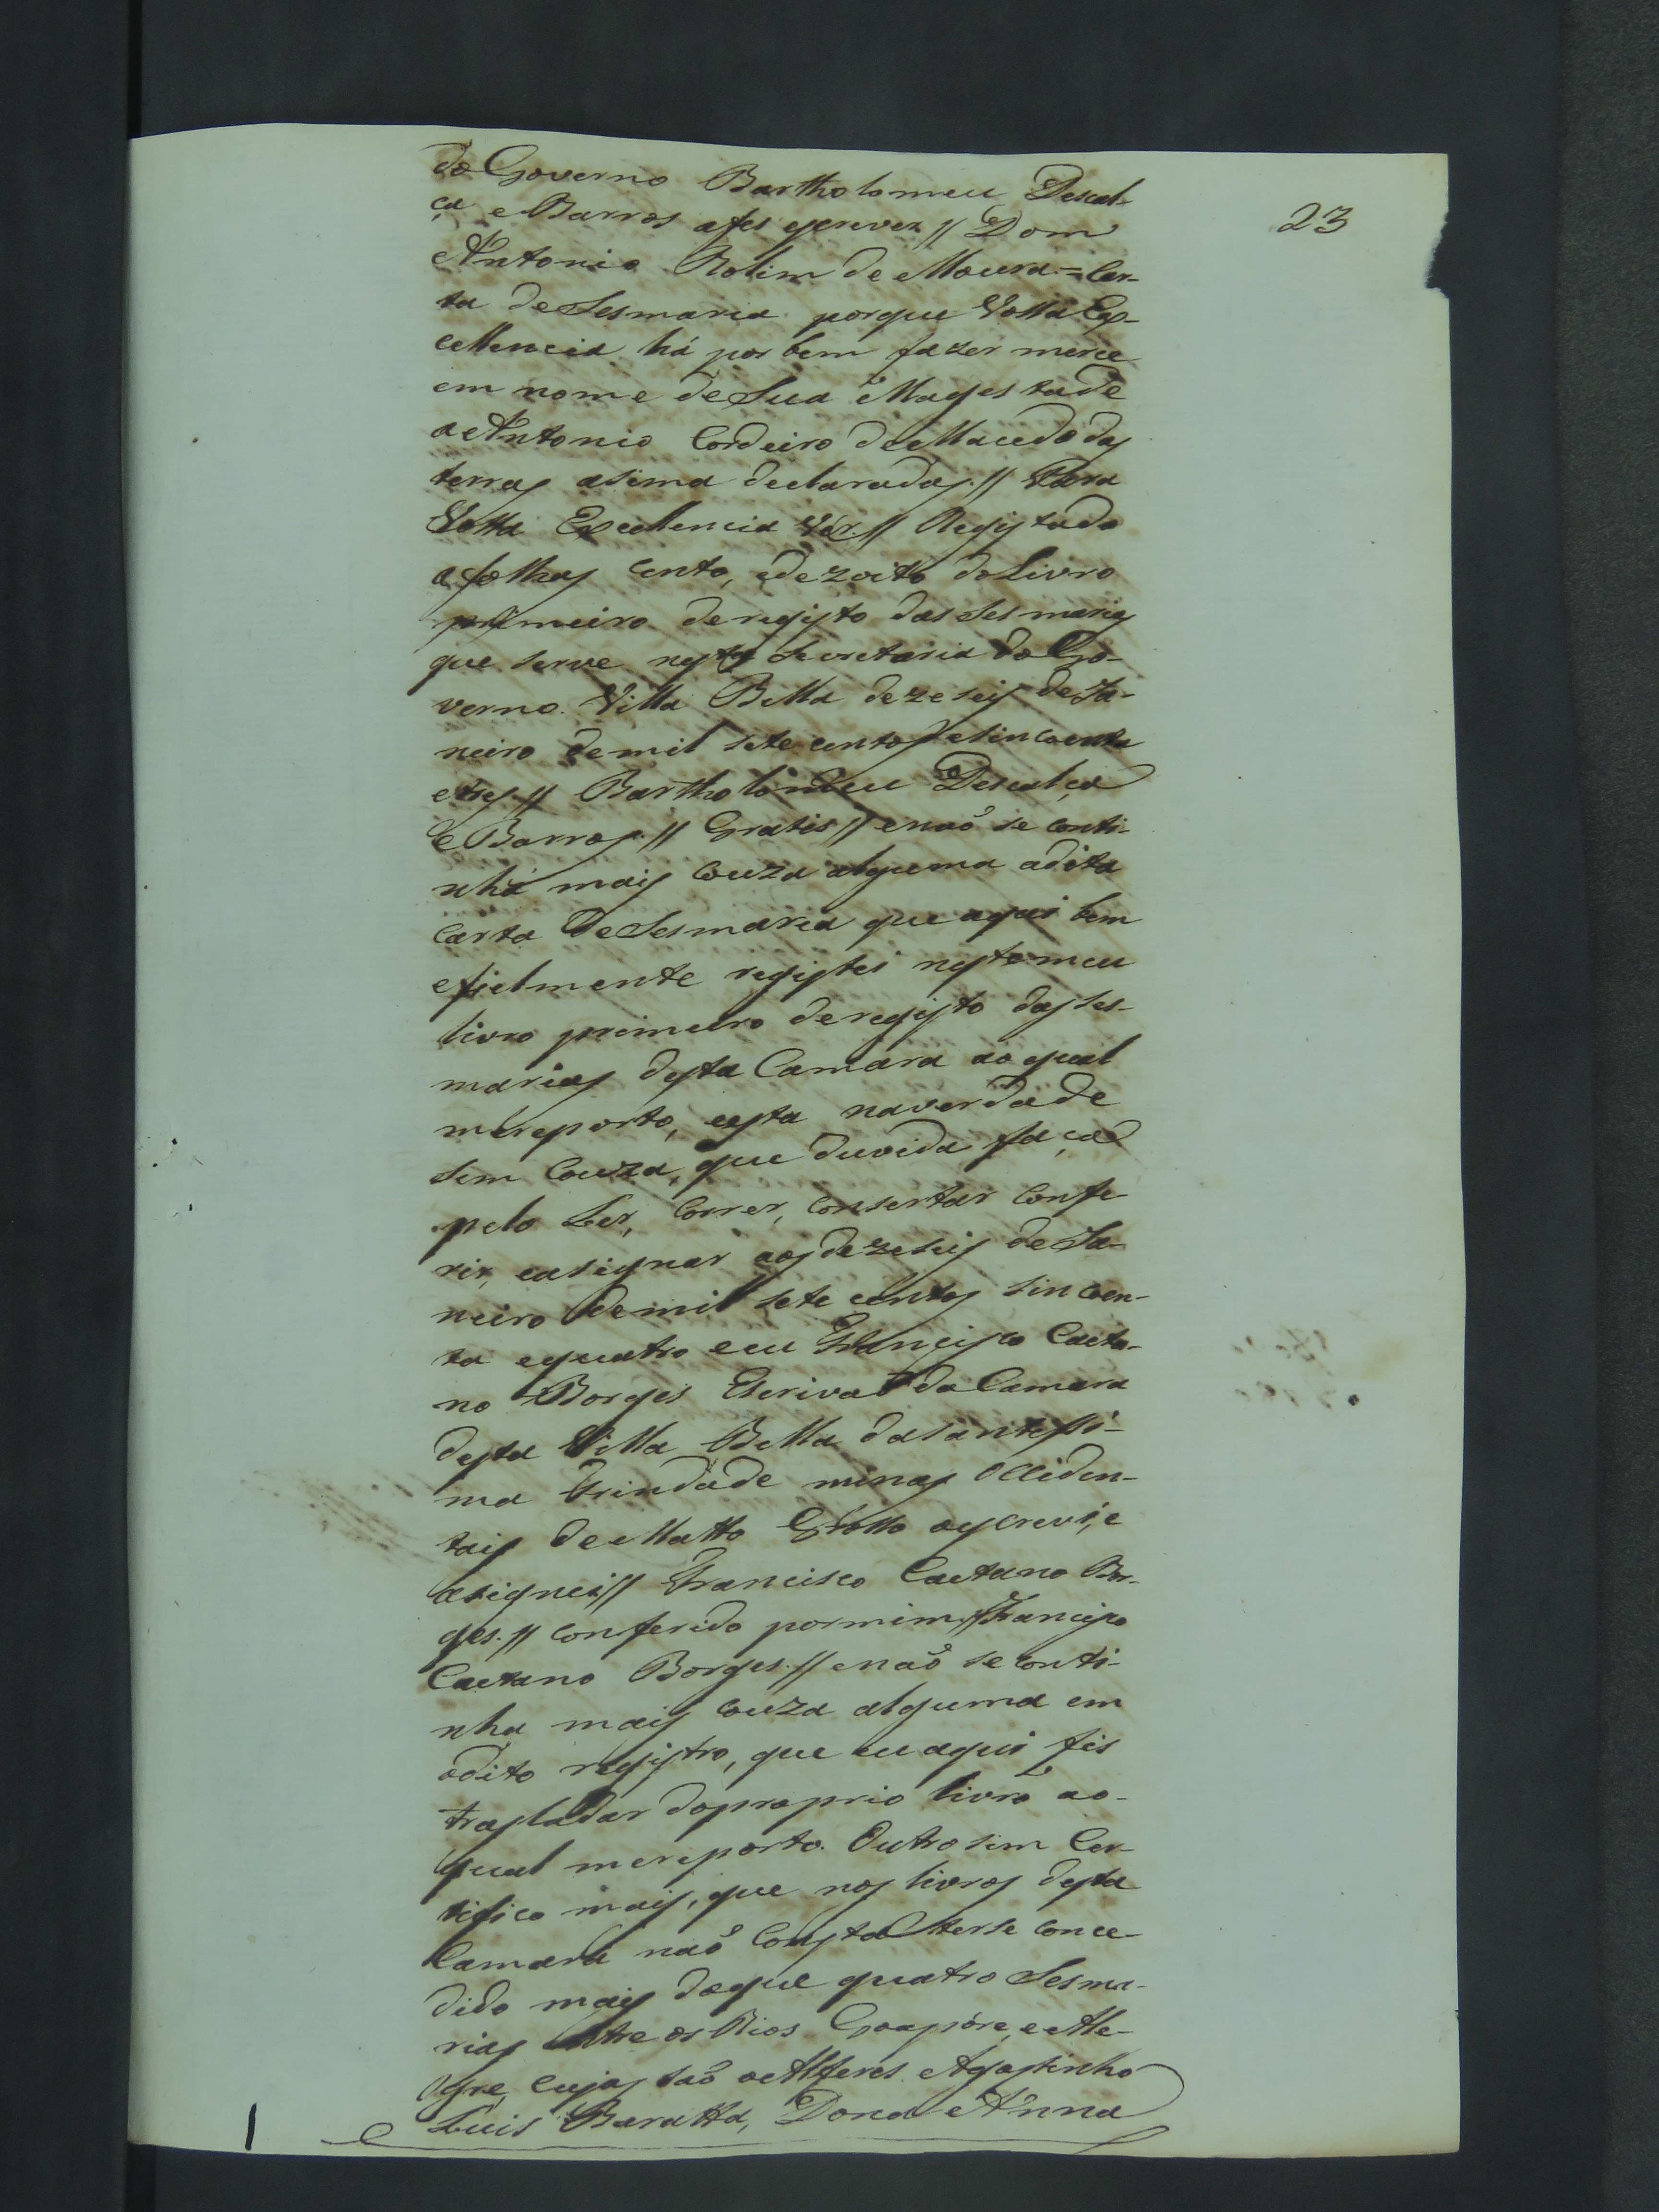 23
do Governo Bartholomeu Descal-
ça e Barros afes escrever // Dom
Antonio Rolim de Moura = Car-
ta de Sesmaria porque Vossa Ex-
cellencia há por bem fazer merce
em nome de Sua Magestade
a Antonio Cordeiro de Macedo das
terras asima declaradas. // Para
Vossa Excellencia Vér. // Registado
a folhas cento, edezoito do Livro
primeiro de registo das Sesmarias
que serve nesta Secretaria do Go-
verno. Villa Bella dezeseis de Ja-
neiro demil sete centos esincoenta
etres // Bartholomeu Descalça
e Barros. // Gratis // enaõ se conti-
nha mais couza alguma adita
Carta de Sesmaria que aqui bem
efielmente registei neste meu
livro primeiro de registo das ses-
marias desta Camara ao qual
mereporto, eesta naverdade
sem Couza, que duvida faça
pelo Ler, Correr, Consertar Confe-
rir, easignar aos dezeseis de Ja-
neiro demil sete centos sincoen-
ta equatro eeu Francisco Caeta-
no Borges Escrivaõ da Camara
desta Villa Bella da Santissi-
ma Trindade minas Occiden-
tais de Matto Grosso oescrevi, e
asignei // Francisco Caetano Bor-
ges. // Conferido pormim // Francisco
Caetano Borges. // enaõ se conti-
nha mais couza alguma em
odito registro, que eu aqui fis
trasladar dopróprio livro ao-
qual mereporto. Outro sim Cer-
tifico mais, que nos livros desta
Camara naõ Consta terse conce-
dido mais doque quatro Sesma-
rias entre os Rios Goapóre, e Ale-
gre, cujas saõ o Alferes Agostinho
Luis Baratta, Dona Anna